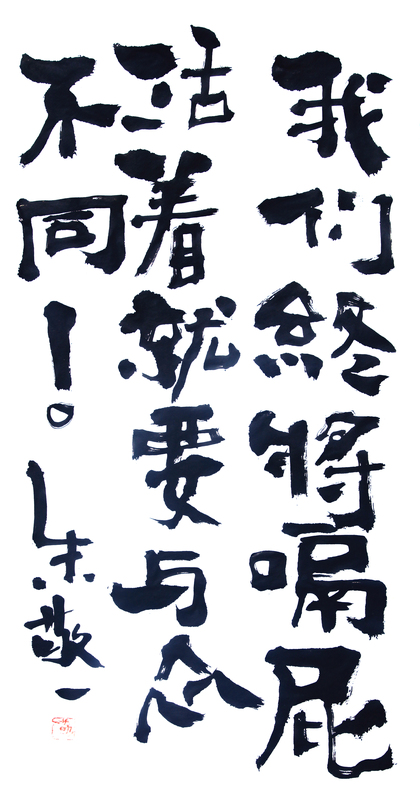 我们終將嗝屁
活着就要与众
不同！
朱敬一